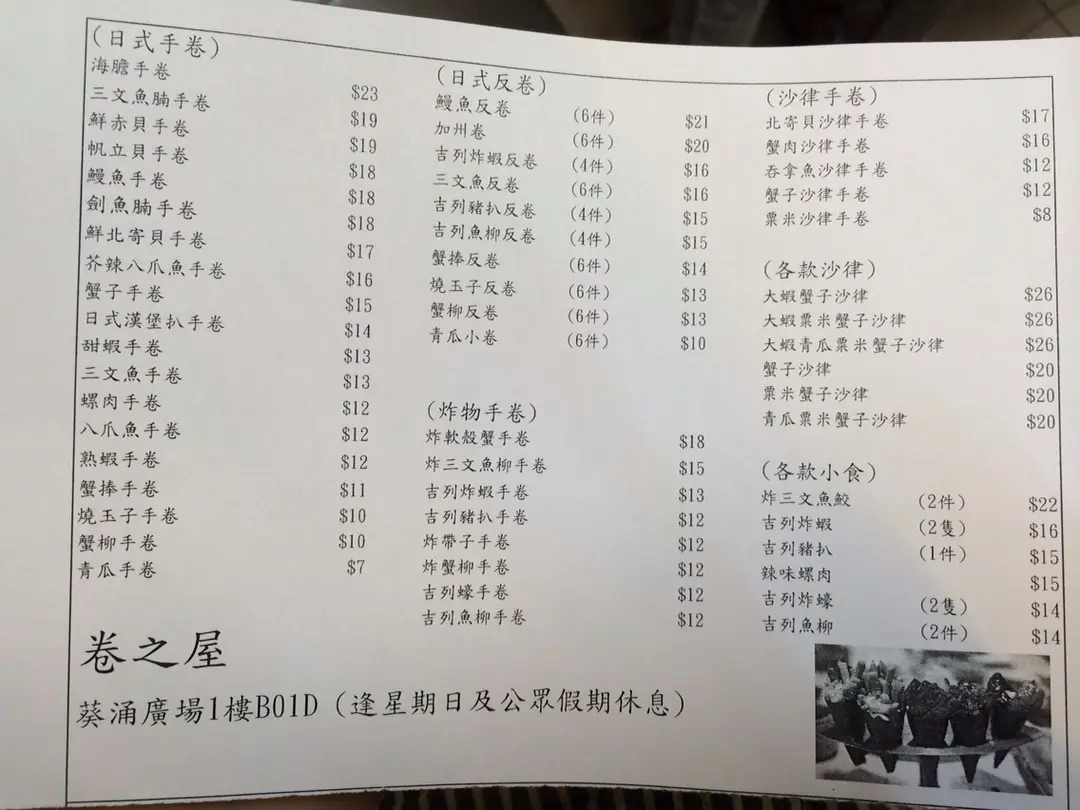 (日式手卷)
海膽手卷 $23
三文魚腩手卷 $19
鮮赤貝手卷 $19
帆立貝手卷 $18
鰻魚手卷 $18
劍魚腩手卷 $18
鮮北寄貝手卷 $17
芥辣八爪魚手卷 $16
蟹子手卷 $15
日式漢堡扒手卷 $14
甜蝦手卷 $13
三文魚手卷 $13
螺肉手卷 $12
八爪魚手卷 $12
熟蝦手卷 $12
蟹捧手卷 $11
燒玉子手卷 $10
蟹柳手卷 $10
青瓜手卷 $7
(日式反卷)
鰻魚反卷 (6件) $21
加州卷 (6件) $20
吉列炸蝦反卷 (4件) $16
三文魚反卷 (6件) $16
吉列豬扒反卷 (4件) $15
吉列魚柳反卷 (4件) $15
蟹捧反卷 (6件) $14
燒玉子反卷 (6件) $13
蟹柳反卷 (6件) $13
青瓜小卷 (6件) $10
(炸物手卷)
炸軟殼蟹手卷 $18
炸三文魚柳手卷 $15
吉列炸蝦手卷 $13
吉列豬扒手卷 $12
炸帶子手卷 $12
炸蟹柳手卷 $12
吉列蠔手卷 $12
吉列魚柳手卷 $12
(沙律手卷)
北寄貝沙律手卷 $17
蟹肉沙律手卷 $16
吞拿魚沙律手卷 $12
蟹子沙律手卷 $12
粟米沙律手卷 $8
(各款沙律)
大蝦蟹子沙律 $26
大蝦粟米蟹子沙律 $26
大蝦青瓜粟米蟹子沙律 $26
蟹子沙律 $20
粟米蟹子沙律 $20
青瓜粟米蟹子沙律 $20
(各款小食)
炸三文魚鮫 (2件) $22
吉列炸蝦 (2隻) $16
吉列豬扒 (1件) $15
辣味螺肉 $15
吉列炸蠔 (2隻) $14
吉列魚柳 (2件) $14
卷之屋
葵涌廣場1樓B01D (逢星期日及公眾假期休息)